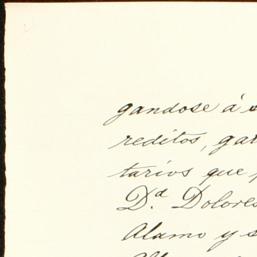 gandose á
reditos, gar
tarios que
D.ª Dolores
Alamo y s